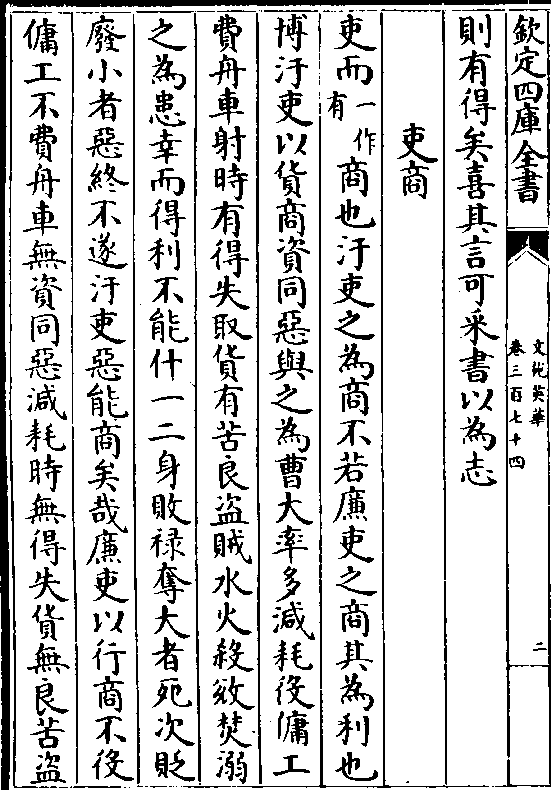 欽定四庫全書
文苑英華
卷三百七十四
二
則有得矣喜其言可采書以為志
吏商
吏而一作有商也汙吏之為商不若廉吏之商其為利也
博汙吏以貨商資同惡與之為曹大率多減耗役傭工
費舟車射時有得失取貨有苦良盜賊水火殺敓焚溺
之為患幸而得利不能什一二身敗祿奪大者死次貶
廢小者惡終不遂汙吏惡能商矣哉廉吏以行商不役
傭工不費舟車無資同惡減耗時無得失貨無良苦盜